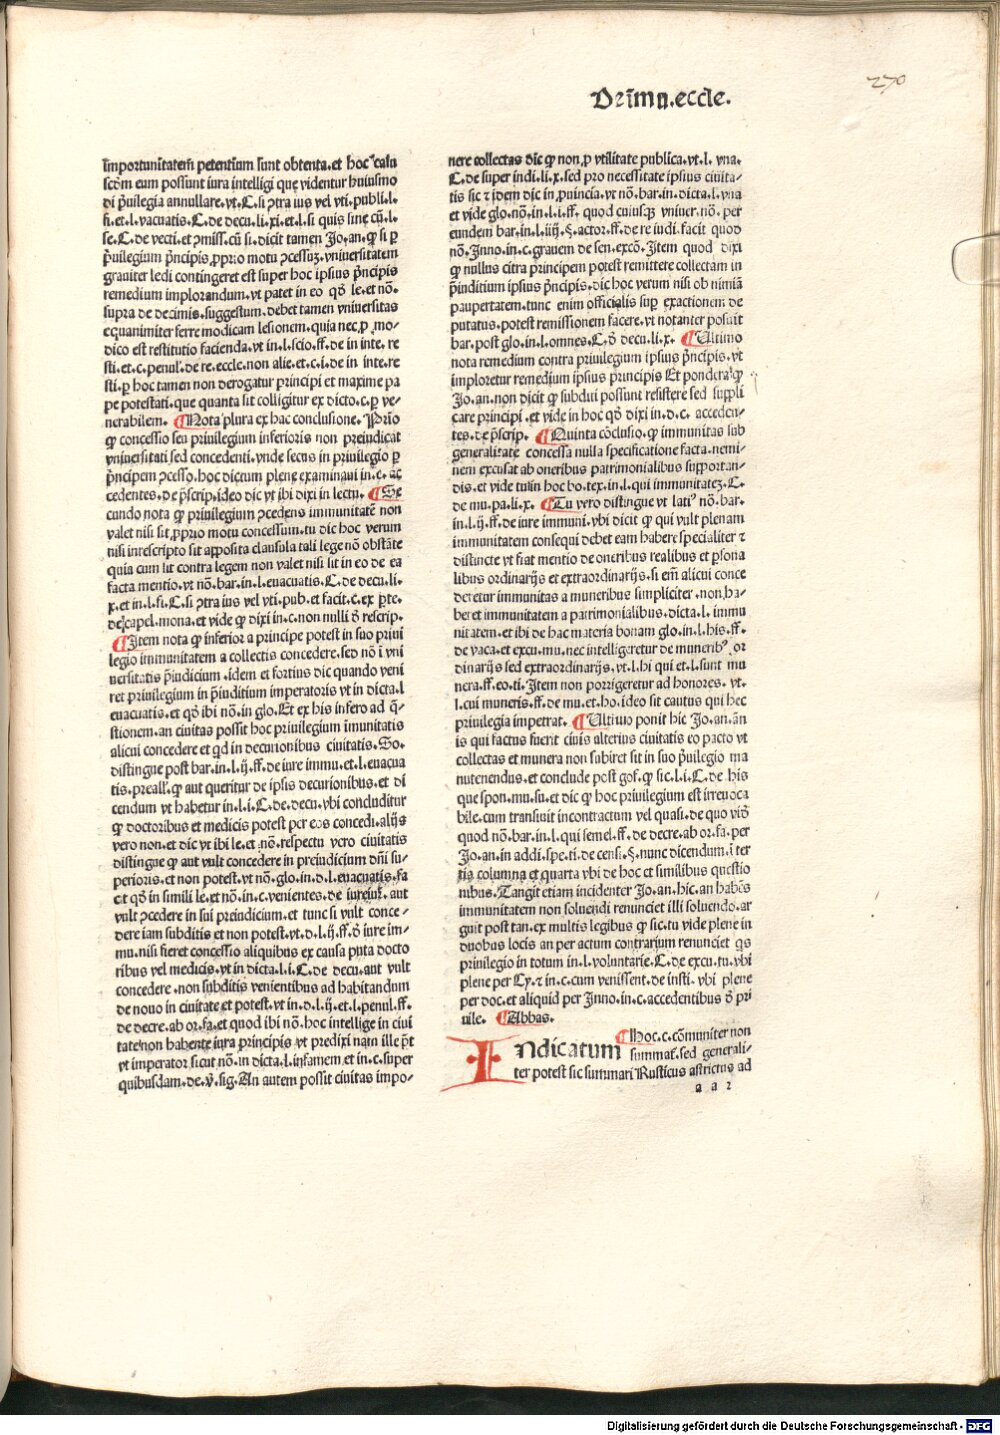 270
De īmu.eccle.
importunitatem petentium sunt obtenta.et hoc casu
scḋm eum possunt iura intelligi que videntur huiusmo
di p̄uilegia annullare.vt.C.si ꝯtra ius vel vti.publi.l.
fi.et.l.vacuatis.C.de decu.li.xi.et.l.si quis sine cū.l.
se.C.de vecti.et ꝯmiss.cū si.dicit tamen Jo.an.ꝙ si ꝑ
p̄uilegium p̄ncipis ꝓprio motu ꝯcessuꝫ.vniuersitatem
grauiter ledi contingeret est super hoc ipsius p̄ncipis
remedium implorandum.vt patet in eo qḋ le.et nō.
supra de decimis.suggestum.debet tamen vniuersitas
equanimiter ferre modicam lesionem.quia nec ꝓ mo⸗
dico est restitutio facienda.vt in.l.scio.ff.de in inte.re
sti.et.c.penul.de re.eccle.non alie.et.c.i.de in inte.re
sti.ꝑ hoc tamen non derogatur principi et maxime pa
pe potestati.que quanta sit colligitur ex dicto.c.ꝑ ve⸗
nerabilem. ¶Nota plura ex hac conclusione.Primo
ꝙ concessio seu priuilegium inferioris non preiudicat
vniuersitati sed concedenti.vnde secus in priuilegio ꝑ
p̄ncipem ꝯcesso.hoc dictum plene examinaui in.c.ac
cedentes.de p̄scrip.ideo dic vt ibi dixi in lectu. ¶Se
cundo nota ꝙ priuilegium ꝯcedens immunitatē non
valet nisi sit ꝓprio motu concessum.tu dic hoc verum
nisi inrescripto sit apposita clausula tali lege nō obstāte
quia cum sit contra legem non valet nisi sit in eo de ea
facta mentio.vt nō.bar.in.l.euacuatis.C.de decu.li.
x.et in.l.fi.C.si ꝯtra ius vel vti.pub.et facit.c.ex ꝑte.
de capel.mona.et vide ꝙ dixi in.c.non nulli ō rescrip.
¶Item nota ꝙ inferior a principe potest in suo priui
legio immunitatem a collectis concedere.sed nō ī vni
uersitatis p̄iudicium.idem et fortius dic quando veni
ret priuilegium in p̄iuditium imperatoris vt in dicta.l
euacuatis.et qḋ ibi nō.in glo.Et ex his infero ad q̄⸗
stionem.an ciuitas possit hoc priuilegium īmunitatis
alicui concedere et qḋ in decurionibus ciuitatis.So.
distingue post bar.in.l.ij.ff.de iure immu.et.l.euacua
tis.preall.ꝙ aut queritur de ipsis decurionibus.et di
cendum vt habetur in.l.i.C.de.decu.vbi concluditur
ꝙ doctoribus et medicis potest per eos concedi.alijs
vero non.et dic vt ibi le.et nō.respectu vero ciuitatis
distingue ꝙ aut vult concedere in preiudicium dn̄i su⸗
perioris.et non potest.vt nō.glo.in.d.l.euacuatis.fa
cit qḋ in simili le.et nō.in.c.venientes.de iureiur.aut
vult ꝯcedere in sui preiudicium.et tunc si vult conce⸗
dere iam subditis et non potest.vt.d.l.ij.ff.ō iure im⸗
mu.nisi fieret concessio aliquibus ex causa puta docto
ribus vel medicis.vt in dicta.l.i.C.de decu.aut vult
concedere.non subditis venientibus ad habitandum
de nouo in ciuitate et potest.vt in.d.l.ij.et.l.penul.ff.
de decre.ab or.fa.et quod ibi nō.hoc intellige in ciui
tate non habente iura principis vt predixi nam ille p̄t
vt imperator sicut nō.in dicta.l.infamem.et in.c.super
quibusdam.de.v̄.sig.An autem possit ciuitas impo⸗
nere collectas dic ꝙ non ꝓ vtilitate publica.vt.l.vna.
C.de super indi.li.x.sed pro necessitate ipsius ciuita⸗
tis sic ⁊ idem dic in ꝓuincia.vt nō.bar.in.dicta.l.vna
et vide glo.nō.in.l.i.ff.quod cuiusqꝫ vniuer.nō.per
eundem bar.in.l.iiij.§.actor.ff.de re iudi.facit quod
nō.Inno.in.c.grauem de sen.excō.Item quod dixi
ꝙ nullus citra principem potest remittere collectam in
p̄iuditium ipsius p̄ncipis.dic hoc verum nisi ob nimiā
paupertatem.tunc enim officialis suꝑ exactionem de
putatus.potest remissionem facere.vt notanter posuit
bar.post glo.in.l.omnes.C.ō decu.li.x. ¶Ultimo
nota remedium contra priuilegium ipsius p̄ncipis.vt
imploretur remedium ipsius principis Et pondera ꝙ
Jo.an.non dicit ꝙ subditi possunt resistere sed suppli
care principi.et vide in hoc qḋ dixi in.d.c.acceden⸗
tes.de p̄scrip. ¶Quinta cōclusio.ꝙ immunitas sub
generalitate concessa nulla specificatione facta.nemi⸗
nem excusat ab oneribus patrimonialibus supportan⸗
dis.et vide tu in hoc bo.tex.in.l.qui immunitateꝫ.C.
de mu.pa.li.x. ¶Tu vero distingue vt lati⁹ nō.bar.
in.l.ij.ff.de iure immuni.vbi dicit ꝙ qui vult plenam
immunitatem consequi debet eam habere specialiter ⁊
distincte vt fiat mentio de oneribus realibus et ꝑsona
libus ordinarijs et extraordinarijs.si em̄ alicui conce
deretur immunitas a muneribus simpliciter.non ha⸗
beret immunitatem a patrimonialibus.dicta.l.immu
nitatem.et ibi de hac materia bonam glo.in.l.his.ff.
de vaca.et excu.mu.nec intelligeretur de munerib⁹.or
dinarijs sed extraordinarijs.vt.l.hi qui et.l.sunt mu
nera.ff.eo.ti.Item non porrigeretur ad honores.vt.
l.cui muneris.ff.de mu.et.ho.ideo sit cautus qui hec
priuilegia impetrat. ¶Ultimo ponit hic Jo.an.an
is qui factus fuerit ciuis alterius ciuitatis eo pacto vt
collectas et munera non subiret sit in suo p̄uilegio ma
nutenendus.et conclude post gof.ꝙ sic.l.i.C.de his
que spon.mu.su.et dic ꝙ hoc priuilegium est irreuoca
bile.cum transiuit incontractum vel quasi.de quo vidē
quod nō.bar.in.l.qui semel.ff.de decre.ab or.fa.per
Jo.an.in addi.spe.ti.de censi.§.nunc dicendum.ī ter
tia columna et quarta vbi de hoc et similibus questio
nibus.Tangit etiam incidenter Jo.an.hic.an habēs
immunitatem non soluendi renunciet illi soluendo.ar
guit post tan.ex multis legibus ꝙ sic.tu vide plene in
duobus locis an per actum contrarium renunciet quis
priuilegio in totum in.l.voluntarie.C.de excu.tu.vbi
plene per Cy.⁊ in.c.cum venissent.de insti.vbi plene
per doc.et aliquid per Inno.in.c.accedentibus ō pri
uile. ¶Abbas.
Indicatum ¶Hoc.c.cōmuniter non
summat.sed generali⸗
ter potest sic summari Rusticus astrictus ad
a a 2
Digitalisierung gefördert durch die Deutsche Forschungsgemeinschaft - DFG